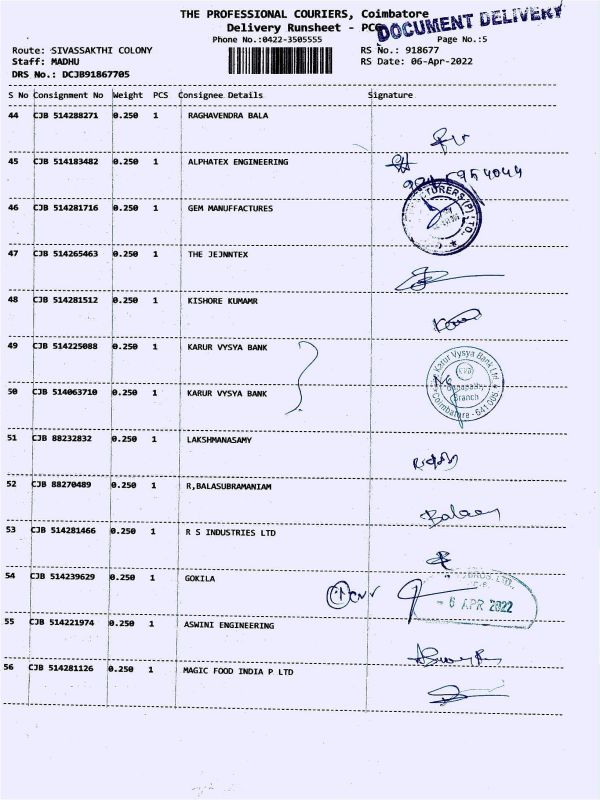 THE PROFESSIONAL COURIERS, Coimbatore
Delivery Runsheet - PCG
DOCUMENT DELIVERY
Phone No.:0422-3505555
Page No.:5
Route: SIVASSAKTHI COLONY
RS No.: 918677
Staff: MADHU
RS Date: 06-Apr-2022
DRS No.: DCJB91867705
S No Consignment No Weight PCS Consignee Details Signature
44 CJB 514288271 0.250 1 RAGHAVENDRA BALA
45 CJB 514183482 0.250 1 ALPHATEX ENGINEERING
46 CJB 514281716 0.250 1 GEM MANUFFACTURES
47 CJB 514265463 0.250 1 THE JEJNNTEX
48 CJB 514281512 0.250 1 KISHORE KUMAMR
49 CJB 514225088 0.250 1 KARUR VYSYA BANK
Karur Vysya Bank Ltd
KVB
50 CJB 514063710 0.250 1 KARUR VYSYA BANK
Branch
Coimbatore - 641 006
51 CJB 88232832 0.250 1 LAKSHMANASAMY
52 CJB 88270489 0.250 1 R,BALASUBRAMANIAM
53 CJB 514281466 0.250 1 R S INDUSTRIES LTD
54 CJB 514239629 0.250 1 GOKILA
- 6 APR 2022
55 CJB 514221974 0.250 1 ASWINI ENGINEERING
56 CJB 514281126 0.250 1 MAGIC FOOD INDIA P LTD